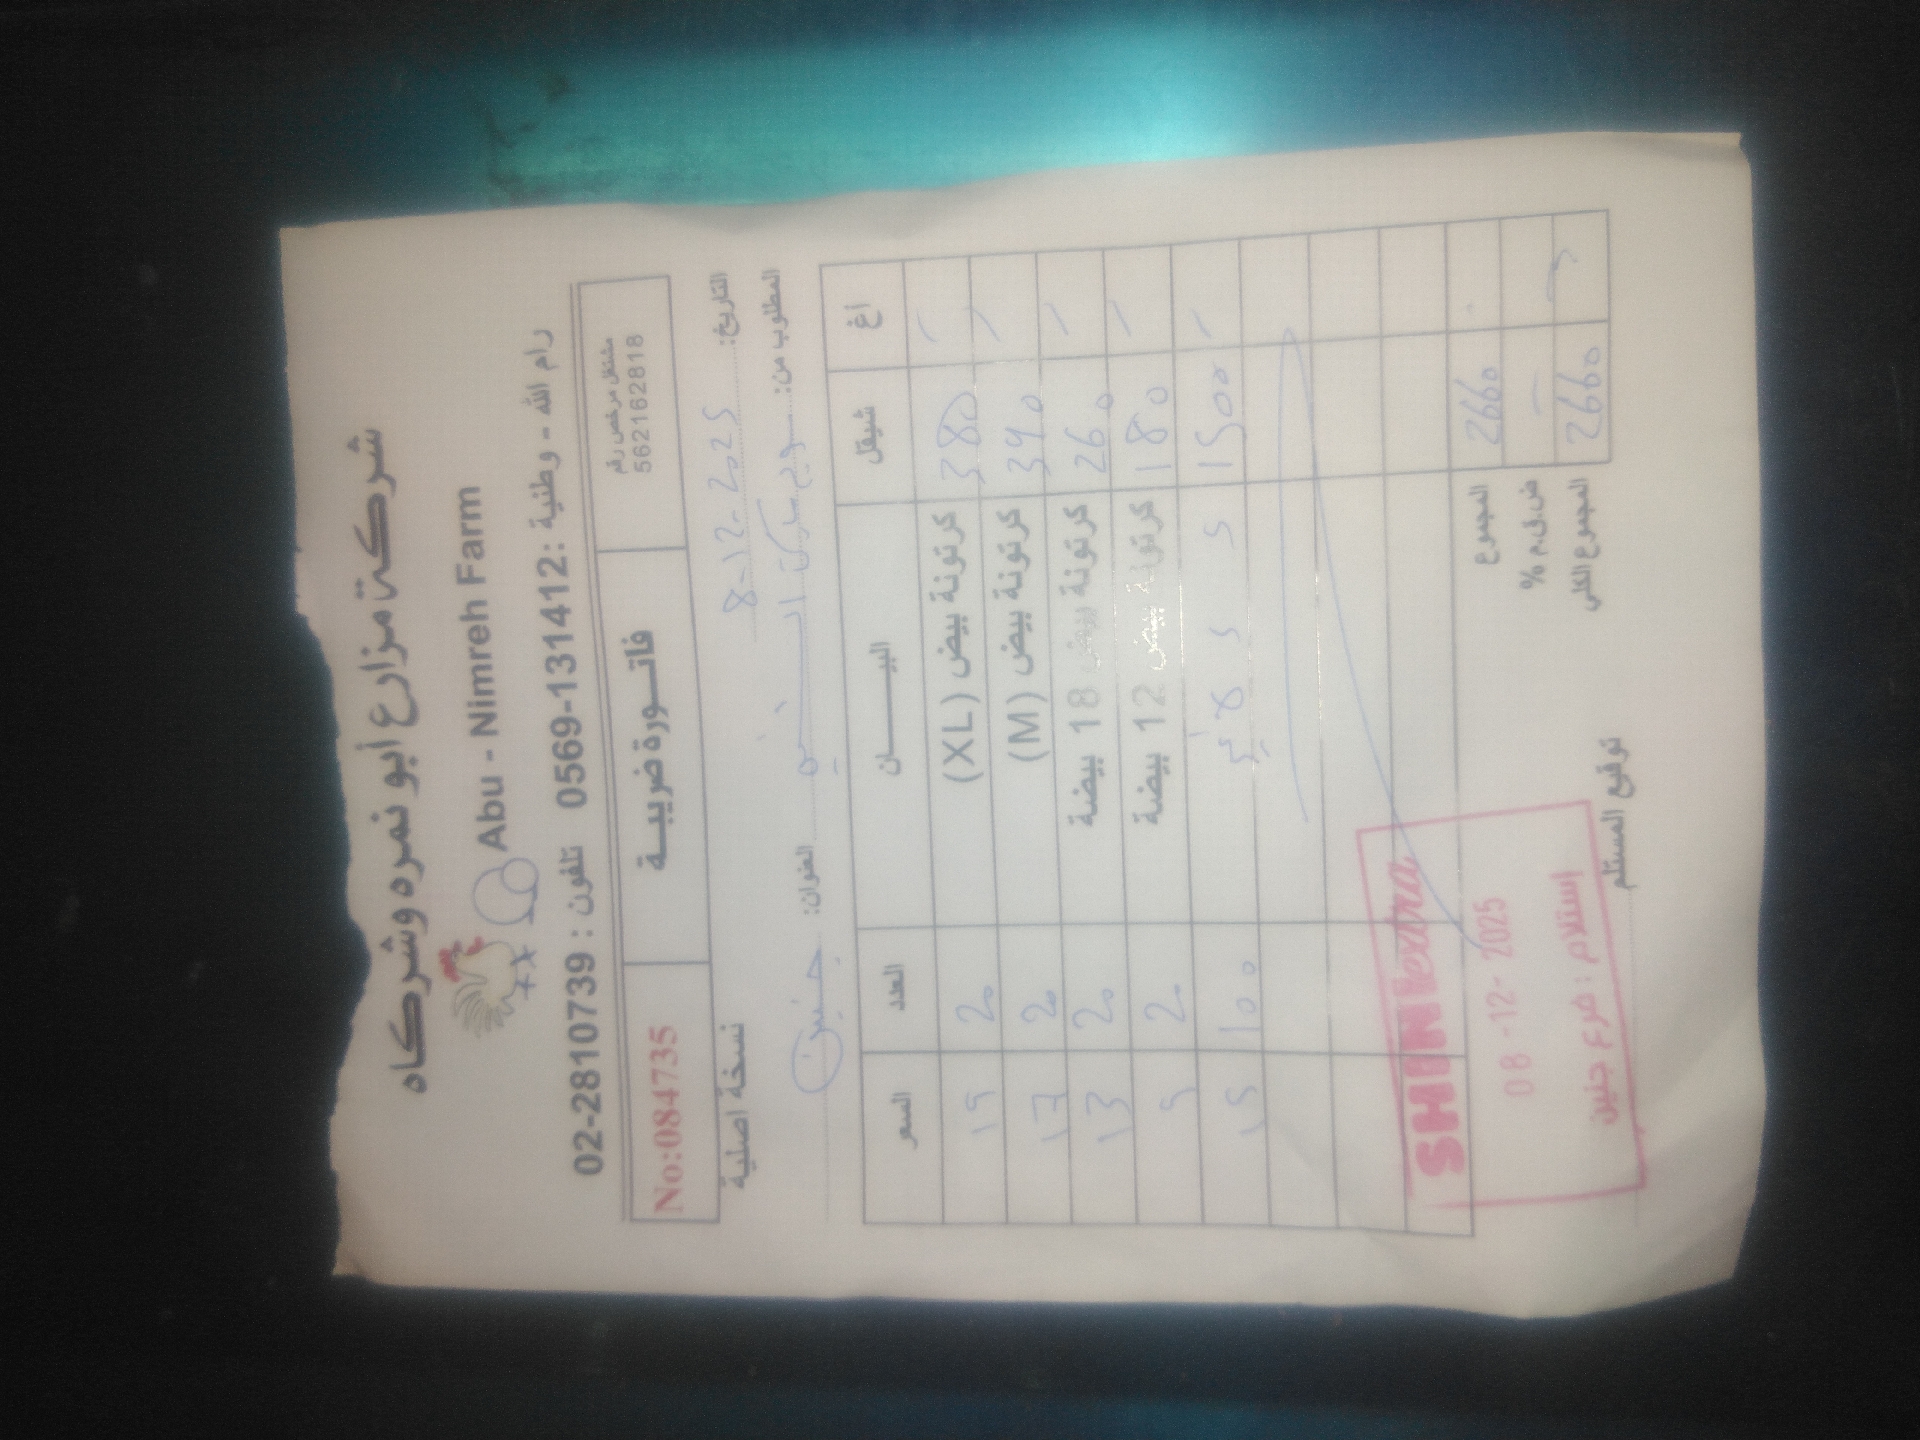 شركة مزارع أبو نمره وشركاه
Abu - Nimreh Farm
رام الله - وطنية : 0569-131412 تلفون : 02-2810739
مشتغل مرخص رقم
562162818
فاتورة ضريبية
No:084735
التاريخ: 8-12-2025
نسخة اصلية
المطلوب من:
العنوان: جنين
أغ شيقل البيان العدد السعر
380 كرتونة بيض (XL) 20 19
340 كرتونة بيض (M) 20 17
260 كرتونة بيض 18 بيضة 20 13
180 كرتونة بيض 12 بيضة 20 9
1500 100 15
2660 المجموع
ض.ق.م %
2660 المجموع الكلي
SHINI extra
08-12-2025
إستلام : فرع جنين
توقيع المستلم